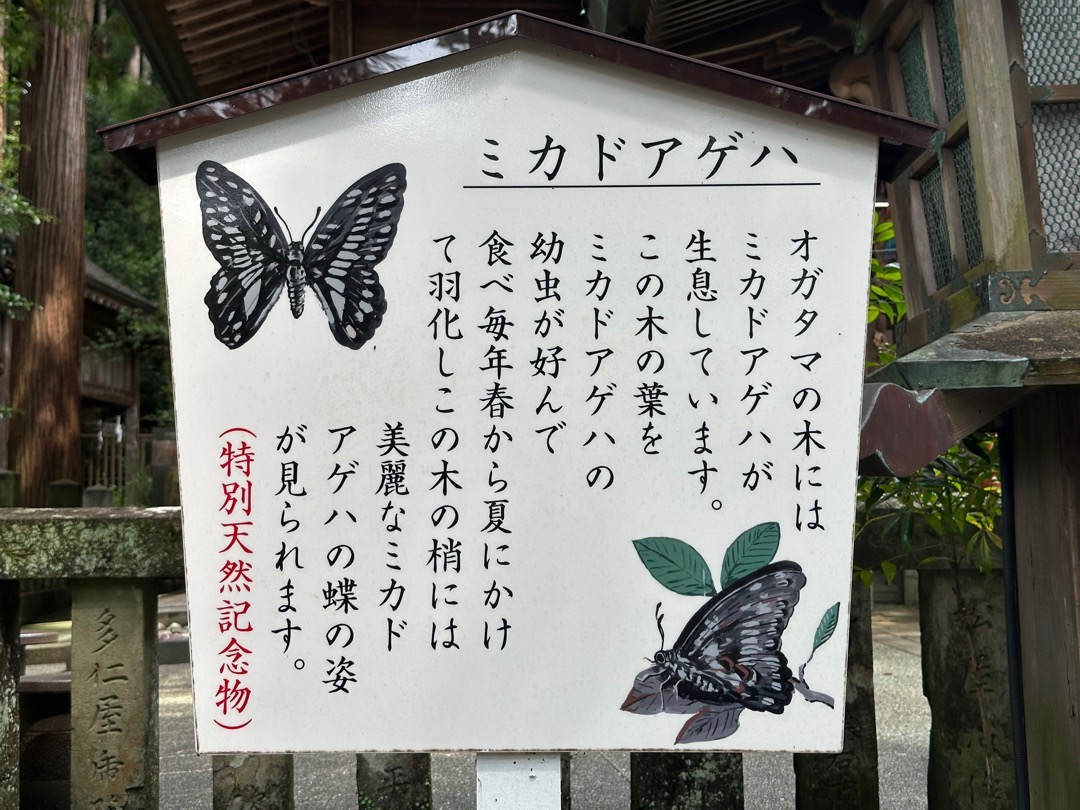 ミカドアゲハ
オガタマの木には
ミカドアゲハが
生息しています。
この木の葉を
ミカドアゲハの
幼虫が好んで
食べ毎年春から夏にかけ
て羽化しこの木の梢には
美麗なミカド
アゲハの蝶の姿
が見られます。
(特別天然記念物)
多仁屋